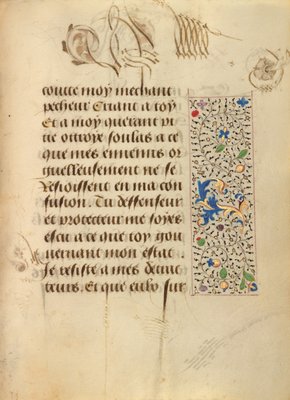 coutte moy mechant
pecheur Criant a toy
Et a moy querant pi
tie ottroye soulas a ce
que mes ennemis or
guelleusement ne se
Resioissent en ma con
fusion. Tu deffenseur
et protecteur me soyes
escu a ce que toy gou
uernant mon estat
Je resiste a mes detrac
teurs. Et que